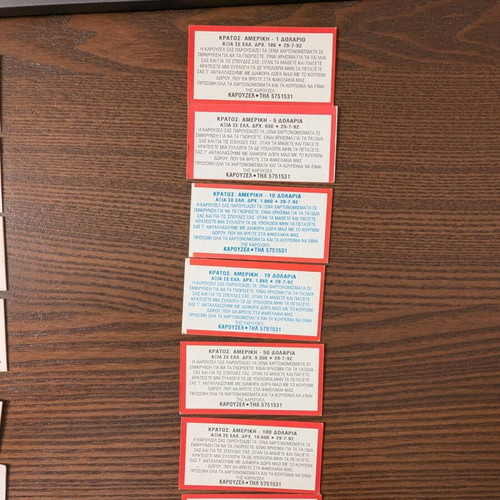 ΚΡΑΤΟΣ: ΑΜΕΡΙΚΗ - 1 ΔΟΛΑΡΙΟ
ΑΞΙΑ ΣΕ ΕΛΛ. ΔΡΧ. 186 • 29-7-92
Η ΚΑΡΟΥΖΕΛ ΣΑΣ ΠΑΡΟΥΣΙΑΖΕΙ ΤΑ ΞΕΝΑ ΧΑΡΤΟΝΟΜΙΣΜΑΤΑ ΣΕ
ΣΜΙΚΡΥΝΣΗ ΓΙΑ ΝΑ ΤΑ ΓΝΩΡΙΣΕΤΕ. ΕΙΝΑΙ ΧΡΗΣΙΜΑ ΓΙΑ ΤΑ ΤΑΞΙΔΙΑ
ΣΑΣ ΚΑΙ ΓΙΑ ΤΙΣ ΣΠΟΥΔΕΣ ΣΑΣ. ΟΤΑΝ ΤΑ ΜΑΘΕΤΕ ΚΑΙ ΠΑΙΞΕΤΕ
ΚΡΑΤΕΙΣΤΕ ΜΙΑ ΣΥΛΛΟΓΗ ΤΑ ΔΕ ΥΠΟΛΟΙΠΑ ΜΗΝ ΤΑ ΠΕΤΑΞΕΤΕ
ΣΑΣ Τ' ΑΝΤΑΛΛΑΣΣΟΥΜΕ ΜΕ ΔΙΑΦΟΡΑ ΔΩΡΑ ΜΑΖΙ ΜΕ ΤΟ ΚΟΥΠΟΝΙ
ΔΩΡΟΥ, ΠΟΥ ΘΑ ΒΡΕΙΤΕ ΣΤΑ ΦΑΚΕΛΑΚΙΑ ΜΑΣ.
ΠΡΟΣΟΧΗ ΟΛΑ ΤΑ ΧΑΡΤΟΝΟΜΙΣΜΑΤΑ ΚΑΙ ΤΑ ΚΟΥΠΟΝΙΑ ΝΑ ΕΙΝΑΙ
ΤΗΣ ΚΑΡΟΥΖΕΛ
ΚΑΡΟΥΖΕΛ • ΤΗΛ 5751531
ΚΡΑΤΟΣ: ΑΜΕΡΙΚΗ - 5 ΔΟΛΑΡΙΑ
ΑΞΙΑ ΣΕ ΕΛΛ. ΔΡΧ. 930 • 29-7-92
Η ΚΑΡΟΥΖΕΛ ΣΑΣ ΠΑΡΟΥΣΙΑΖΕΙ ΤΑ ΞΕΝΑ ΧΑΡΤΟΝΟΜΙΣΜΑΤΑ ΣΕ
ΣΜΙΚΡΥΝΣΗ ΓΙΑ ΝΑ ΤΑ ΓΝΩΡΙΣΕΤΕ. ΕΙΝΑΙ ΧΡΗΣΙΜΑ ΓΙΑ ΤΑ ΤΑΞΙΔΙΑ
ΣΑΣ ΚΑΙ ΓΙΑ ΤΙΣ ΣΠΟΥΔΕΣ ΣΑΣ. ΟΤΑΝ ΤΑ ΜΑΘΕΤΕ ΚΑΙ ΠΑΙΞΕΤΕ
ΚΡΑΤΕΙΣΤΕ ΜΙΑ ΣΥΛΛΟΓΗ ΤΑ ΔΕ ΥΠΟΛΟΙΠΑ ΜΗΝ ΤΑ ΠΕΤΑΞΕΤΕ
ΣΑΣ Τ' ΑΝΤΑΛΛΑΣΣΟΥΜΕ ΜΕ ΔΙΑΦΟΡΑ ΔΩΡΑ ΜΑΖΙ ΜΕ ΤΟ ΚΟΥΠΟΝΙ
ΔΩΡΟΥ, ΠΟΥ ΘΑ ΒΡΕΙΤΕ ΣΤΑ ΦΑΚΕΛΑΚΙΑ ΜΑΣ.
ΠΡΟΣΟΧΗ ΟΛΑ ΤΑ ΧΑΡΤΟΝΟΜΙΣΜΑΤΑ ΚΑΙ ΤΑ ΚΟΥΠΟΝΙΑ ΝΑ ΕΙΝΑΙ
ΤΗΣ ΚΑΡΟΥΖΕΛ
ΚΑΡΟΥΖΕΛ • ΤΗΛ 5751531
ΚΡΑΤΟΣ: ΑΜΕΡΙΚΗ - 10 ΔΟΛΑΡΙΑ
ΑΞΙΑ ΣΕ ΕΛΛ. ΔΡΧ. 1.860 • 29-7-92
Η ΚΑΡΟΥΖΕΛ ΣΑΣ ΠΑΡΟΥΣΙΑΖΕΙ ΤΑ ΞΕΝΑ ΧΑΡΤΟΝΟΜΙΣΜΑΤΑ ΣΕ
ΣΜΙΚΡΥΝΣΗ ΓΙΑ ΝΑ ΤΑ ΓΝΩΡΙΣΕΤΕ. ΕΙΝΑΙ ΧΡΗΣΙΜΑ ΓΙΑ ΤΑ ΤΑΞΙΔΙΑ
ΣΑΣ ΚΑΙ ΓΙΑ ΤΙΣ ΣΠΟΥΔΕΣ ΣΑΣ. ΟΤΑΝ ΤΑ ΜΑΘΕΤΕ ΚΑΙ ΠΑΙΞΕΤΕ
ΚΡΑΤΕΙΣΤΕ ΜΙΑ ΣΥΛΛΟΓΗ ΤΑ ΔΕ ΥΠΟΛΟΙΠΑ ΜΗΝ ΤΑ ΠΕΤΑΞΕΤΕ
ΣΑΣ Τ' ΑΝΤΑΛΛΑΣΣΟΥΜΕ ΜΕ ΔΙΑΦΟΡΑ ΔΩΡΑ ΜΑΖΙ ΜΕ ΤΟ ΚΟΥΠΟΝΙ
ΔΩΡΟΥ, ΠΟΥ ΘΑ ΒΡΕΙΤΕ ΣΤΑ ΦΑΚΕΛΑΚΙΑ ΜΑΣ.
ΠΡΟΣΟΧΗ ΟΛΑ ΤΑ ΧΑΡΤΟΝΟΜΙΣΜΑΤΑ ΚΑΙ ΤΑ ΚΟΥΠΟΝΙΑ ΝΑ ΕΙΝΑΙ
ΤΗΣ ΚΑΡΟΥΖΕΛ
ΚΑΡΟΥΖΕΛ • ΤΗΛ 5751531
ΚΡΑΤΟΣ: ΑΜΕΡΙΚΗ - 10 ΔΟΛΑΡΙΑ
ΑΞΙΑ ΣΕ ΕΛΛ. ΔΡΧ. 1.860 • 29-7-92
Η ΚΑΡΟΥΖΕΛ ΣΑΣ ΠΑΡΟΥΣΙΑΖΕΙ ΤΑ ΞΕΝΑ ΧΑΡΤΟΝΟΜΙΣΜΑΤΑ ΣΕ
ΣΜΙΚΡΥΝΣΗ ΓΙΑ ΝΑ ΤΑ ΓΝΩΡΙΣΕΤΕ. ΕΙΝΑΙ ΧΡΗΣΙΜΑ ΓΙΑ ΤΑ ΤΑΞΙΔΙΑ
ΣΑΣ ΚΑΙ ΓΙΑ ΤΙΣ ΣΠΟΥΔΕΣ ΣΑΣ. ΟΤΑΝ ΤΑ ΜΑΘΕΤΕ ΚΑΙ ΠΑΙΞΕΤΕ
ΚΡΑΤΕΙΣΤΕ ΜΙΑ ΣΥΛΛΟΓΗ ΤΑ ΔΕ ΥΠΟΛΟΙΠΑ ΜΗΝ ΤΑ ΠΕΤΑΞΕΤΕ
ΣΑΣ Τ' ΑΝΤΑΛΛΑΣΣΟΥΜΕ ΜΕ ΔΙΑΦΟΡΑ ΔΩΡΑ ΜΑΖΙ ΜΕ ΤΟ ΚΟΥΠΟΝΙ
ΔΩΡΟΥ, ΠΟΥ ΘΑ ΒΡΕΙΤΕ ΣΤΑ ΦΑΚΕΛΑΚΙΑ ΜΑΣ.
ΠΡΟΣΟΧΗ ΟΛΑ ΤΑ ΧΑΡΤΟΝΟΜΙΣΜΑΤΑ ΚΑΙ ΤΑ ΚΟΥΠΟΝΙΑ ΝΑ ΕΙΝΑΙ
ΤΗΣ ΚΑΡΟΥΖΕΛ
ΚΑΡΟΥΖΕΛ • ΤΗΛ 5751531
ΚΡΑΤΟΣ: ΑΜΕΡΙΚΗ - 50 ΔΟΛΑΡΙΑ
ΑΞΙΑ ΣΕ ΕΛΛ. ΔΡΧ. 9.300 • 29-7-92
Η ΚΑΡΟΥΖΕΛ ΣΑΣ ΠΑΡΟΥΣΙΑΖΕΙ ΤΑ ΞΕΝΑ ΧΑΡΤΟΝΟΜΙΣΜΑΤΑ ΣΕ
ΣΜΙΚΡΥΝΣΗ ΓΙΑ ΝΑ ΤΑ ΓΝΩΡΙΣΕΤΕ. ΕΙΝΑΙ ΧΡΗΣΙΜΑ ΓΙΑ ΤΑ ΤΑΞΙΔΙΑ
ΣΑΣ ΚΑΙ ΓΙΑ ΤΙΣ ΣΠΟΥΔΕΣ ΣΑΣ. ΟΤΑΝ ΤΑ ΜΑΘΕΤΕ ΚΑΙ ΠΑΙΞΕΤΕ
ΚΡΑΤΕΙΣΤΕ ΜΙΑ ΣΥΛΛΟΓΗ ΤΑ ΔΕ ΥΠΟΛΟΙΠΑ ΜΗΝ ΤΑ ΠΕΤΑΞΕΤΕ
ΣΑΣ Τ' ΑΝΤΑΛΛΑΣΣΟΥΜΕ ΜΕ ΔΙΑΦΟΡΑ ΔΩΡΑ ΜΑΖΙ ΜΕ ΤΟ ΚΟΥΠΟΝΙ
ΔΩΡΟΥ, ΠΟΥ ΘΑ ΒΡΕΙΤΕ ΣΤΑ ΦΑΚΕΛΑΚΙΑ ΜΑΣ.
ΠΡΟΣΟΧΗ ΟΛΑ ΤΑ ΧΑΡΤΟΝΟΜΙΣΜΑΤΑ ΚΑΙ ΤΑ ΚΟΥΠΟΝΙΑ ΝΑ ΕΙΝΑΙ
ΤΗΣ ΚΑΡΟΥΖΕΛ
ΚΑΡΟΥΖΕΛ • ΤΗΛ 5751531
ΚΡΑΤΟΣ: ΑΜΕΡΙΚΗ - 100 ΔΟΛΑΡΙΑ
ΑΞΙΑ ΣΕ ΕΛΛ. ΔΡΧ. 18.600 • 29-7-92
Η ΚΑΡΟΥΖΕΛ ΣΑΣ ΠΑΡΟΥΣΙΑΖΕΙ ΤΑ ΞΕΝΑ ΧΑΡΤΟΝΟΜΙΣΜΑΤΑ ΣΕ
ΣΜΙΚΡΥΝΣΗ ΓΙΑ ΝΑ ΤΑ ΓΝΩΡΙΣΕΤΕ. ΕΙΝΑΙ ΧΡΗΣΙΜΑ ΓΙΑ ΤΑ ΤΑΞΙΔΙΑ
ΣΑΣ ΚΑΙ ΓΙΑ ΤΙΣ ΣΠΟΥΔΕΣ ΣΑΣ. ΟΤΑΝ ΤΑ ΜΑΘΕΤΕ ΚΑΙ ΠΑΙΞΕΤΕ
ΚΡΑΤΕΙΣΤΕ ΜΙΑ ΣΥΛΛΟΓΗ ΤΑ ΔΕ ΥΠΟΛΟΙΠΑ ΜΗΝ ΤΑ ΠΕΤΑΞΕΤΕ
ΣΑΣ Τ' ΑΝΤΑΛΛΑΣΣΟΥΜΕ ΜΕ ΔΙΑΦΟΡΑ ΔΩΡΑ ΜΑΖΙ ΜΕ ΤΟ ΚΟΥΠΟΝΙ
ΔΩΡΟΥ, ΠΟΥ ΘΑ ΒΡΕΙΤΕ ΣΤΑ ΦΑΚΕΛΑΚΙΑ ΜΑΣ.
ΠΡΟΣΟΧΗ ΟΛΑ ΤΑ ΧΑΡΤΟΝΟΜΙΣΜΑΤΑ ΚΑΙ ΤΑ ΚΟΥΠΟΝΙΑ ΝΑ ΕΙΝΑΙ
ΤΗΣ ΚΑΡΟΥΖΕΛ
ΚΑΡΟΥΖΕΛ • ΤΗΛ 5751531